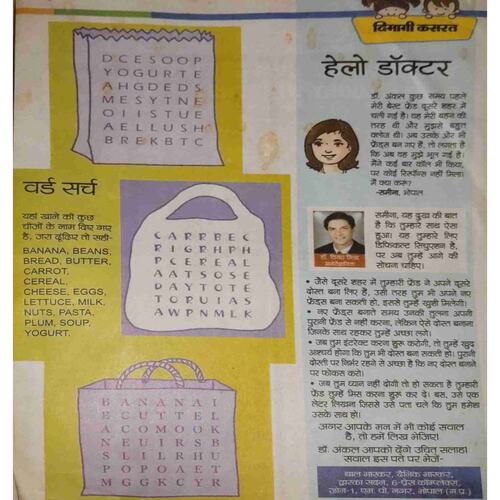 दिमागी कसरत
DCESOOP
YOGURTE
AHGDEDS
MESYTNE
OIISTUE
AELLUSH
BREKBTC
वर्ड सर्च
यहां खाने की कुछ
चीजों के नाम दिए गए
है, जरा ढूंढिए तो सही-
BANANA, BEANS,
BREAD, BUTTER,
CARROT,
CEREAL,
CHEESE, EGGS,
LETTUCE, MILK,
NUTS, PASTA,
PLUM, SOUP,
YOGURT.
CARRBEC
RIGRHPH
PCEREAL
AATSOSE
DAYTOTE
TORUIAS
AWPNMLK
BANANAI
ECUTTEL
ACOMOOK
NEUIRSB
SLILRHU
POPOAET
MGGKCYR
हेलो डॉक्टर
डॉ. अंकल कुछ समय पहले
मेरी बेस्ट फ्रेंड दूसरे शहर में
चली गई है। वह मेरी बहन की
तरह थी और मुझसे बहुत
क्लोज थी। अब उसके और भी
फ्रेंड्स बन गए हैं, तो लगता है
कि अब वह मुझे भूल गई है।
मैंने कई बार कॉल भी किया,
पर कोई रिस्पॉन्स नहीं मिला।
मैं क्या करू?
-समीना, भोपाल
समीना, यह दुख की बात
है कि तुम्हारे साथ ऐसा
हुआ। यह तुम्हारे लिए
डिफिकल्ट सिचुएशन है,
पर अब तुम्हें आगे की
सोचना चाहिए।
डॉ. विनय मिश्रा
• जैसे दूसरे शहर में तुम्हारी फ्रेंड ने अपने दूसरे
दोस्त बना लिए हैं, उसी तरह तुम भी अपने नए
फ्रेंड्स बना सकती हो, इससे तुम्हें खुशी मिलेगी।
• नए फ्रेंड्स बनाते समय उनकी तुलना अपनी
पुरानी फ्रेंड से नहीं करना, लेकिन ऐसे दोस्त बनाना
जिनके साथ रहकर तुम्हें अच्छा लगे।
• जब तुम इंटरेक्ट करना शुरू करोगी, तो तुम्हें खुद
आश्चर्य होगा कि तुम भी दोस्त बना सकती हो। पुरानी
दोस्ती पर निर्भर रहने से अच्छा है कि नए दोस्त बनाने
पर फोकस करो।
• जब तुम ध्यान नहीं दोगी तो हो सकता है तुम्हारी
फ्रेंड तुम्हें मिस करना शुरू कर दे। बस, उसे एक
लेटर लिखना जिससे उसे पता चले कि तुम हमेशा
उसके साथ हो।
अगर आपके मन में भी कोई सवाल
है, तो हमें लिख भेजिए।
डॉ. अंकल आपको देंगे उचित सलाह।
सवाल इस पते पर भेजें-
बाल भास्कर, दैनिक भास्कर,
द्वारका सदन, 6-प्रेस कॉम्प्लेक्स,
जोन-1, एम.पी. नगर, भोपाल (म.प्र.)